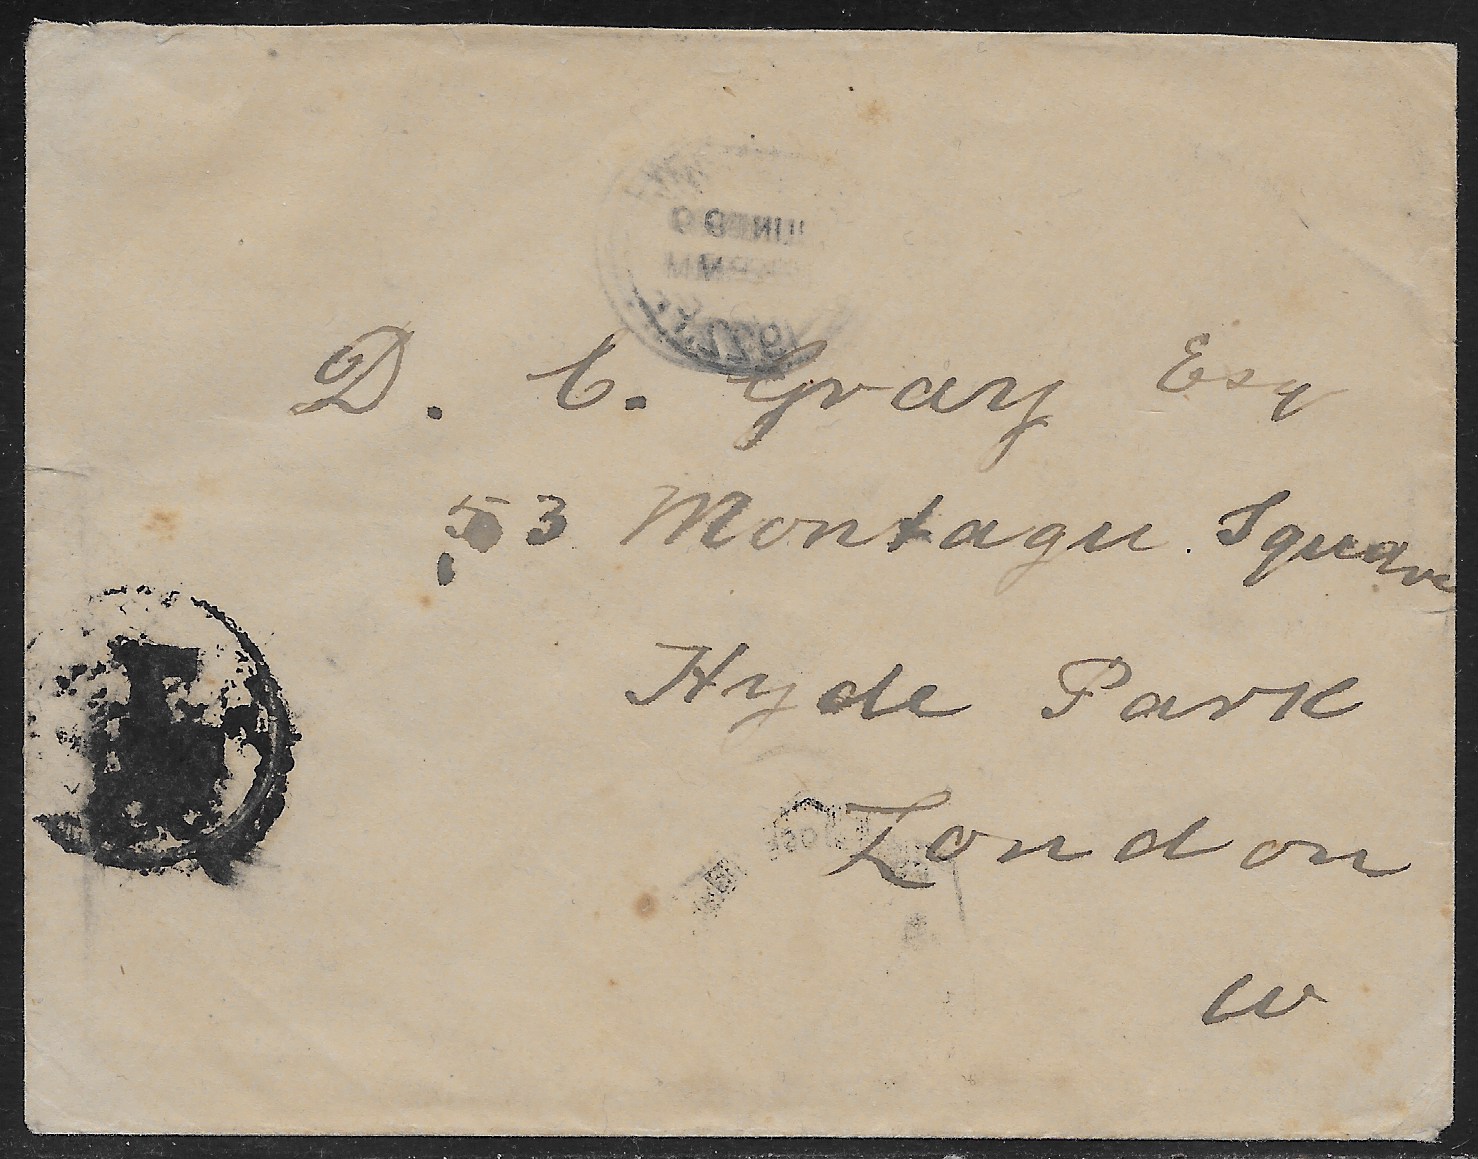 D. C. Gray Esq
53 Montagu Square
Hyde Park
London
W